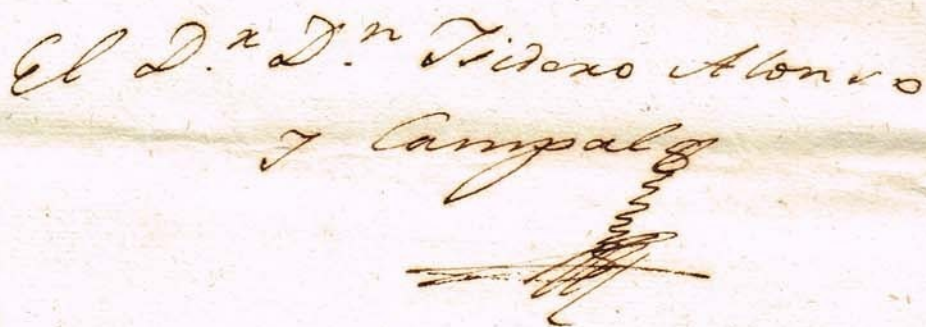 El D.r D.n Isidoro Alonso
Y Campal